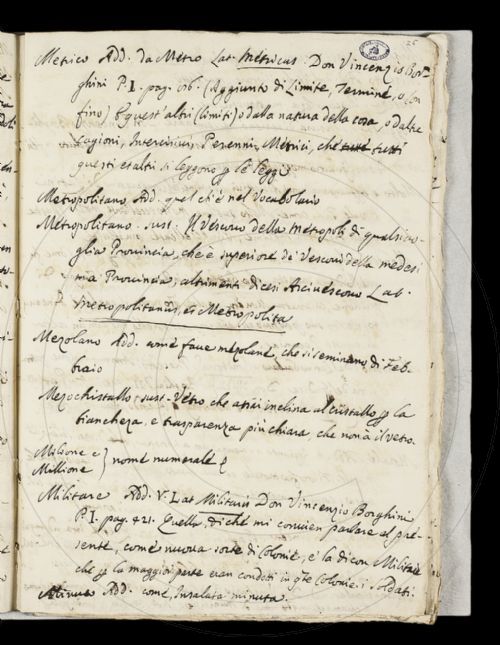 26
Metrico Add. da Metro Lat. Metricus Don Vincenzio Bor-
ghini P. I. pag. (Aggiunto di Limite, Termine, o con
fino) quest'altri (limiti) o dalla natura della cosa, o d'altre
cagioni, Intercisivi, Perenni, Metrici, che tutti
questi et altri si leggono p le leggi
Metropolitano Add. quel ch'è nel Vocabolario
Metropolitano. sust. Il Vescovo della Metropoli di qualsivo-
glia Provincia, che è superiore de' Vescovi della medesi
ma Provincia; altrimenti dicesi Arcivescovo Lat.
Metropolitanus, es Metropolita
Mezolano Add. come fave mezolane, che si seminano di Feb-
braio
Mezochistallo sust. Vetro che assai inclina al cristallo p la
biancheza, e trasparenza più chiara che non à il vetro.
Milione e
Millione } nome numerale
Militare Add. V. Lat. Militaris Don Vincenzio Borghini
P. I. pag. 421. Quella, di che mi convien parlare al pre-
sente, com'è nuova sorte di Colonie, e la dicon Militare
che p la maggior parte eran condotti in qte Colonie i Soldati.
Minuto Add. come, Insalata minuta.